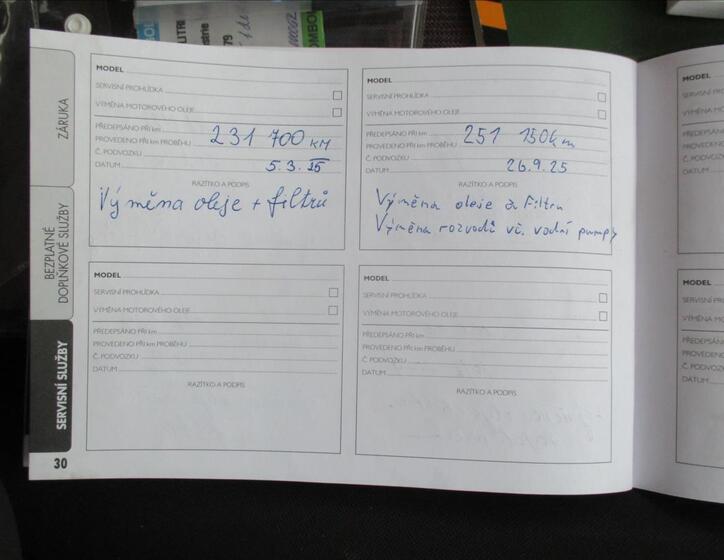 ZÁRUKA
BEZPLATNÉ
DOPLŇKOVÉ SLUŽBY
SERVISNÍ SLUŽBY
30
MODEL
SERVISNÍ PROHLÍDKA
VÝMĚNA MOTOROVÉHO OLEJE
PŘEDEPSÁNO PŘI km
PROVEDENO PŘI km PROBĚHU 231 700 KM
Č. PODVOZKU
DATUM 5.3.25
RAZÍTKO A PODPIS
Výměna oleje + filtrů
MODEL
SERVISNÍ PROHLÍDKA
VÝMĚNA MOTOROVÉHO OLEJE
PŘEDEPSÁNO PŘI km
PROVEDENO PŘI km PROBĚHU 251 150km
Č. PODVOZKU
DATUM 26.9.25
RAZÍTKO A PODPIS
Výměna oleje a filtru
Výměna rozvodů vč. vodní pumpy
MODEL
SERVISNÍ PROHLÍDKA
VÝMĚNA MOTOROVÉHO OLEJE
PŘEDEPSÁNO PŘI km
PROVEDENO PŘI km PROBĚHU
Č. PODVOZKU
DATUM
RAZÍTKO A PODPIS
MODEL
SERVISNÍ PROHLÍDKA
VÝMĚNA MOTOROVÉHO OLEJE
PŘEDEPSÁNO PŘI km
PROVEDENO PŘI km PROBĚHU
Č. PODVOZKU
DATUM
RAZÍTKO A PODPIS